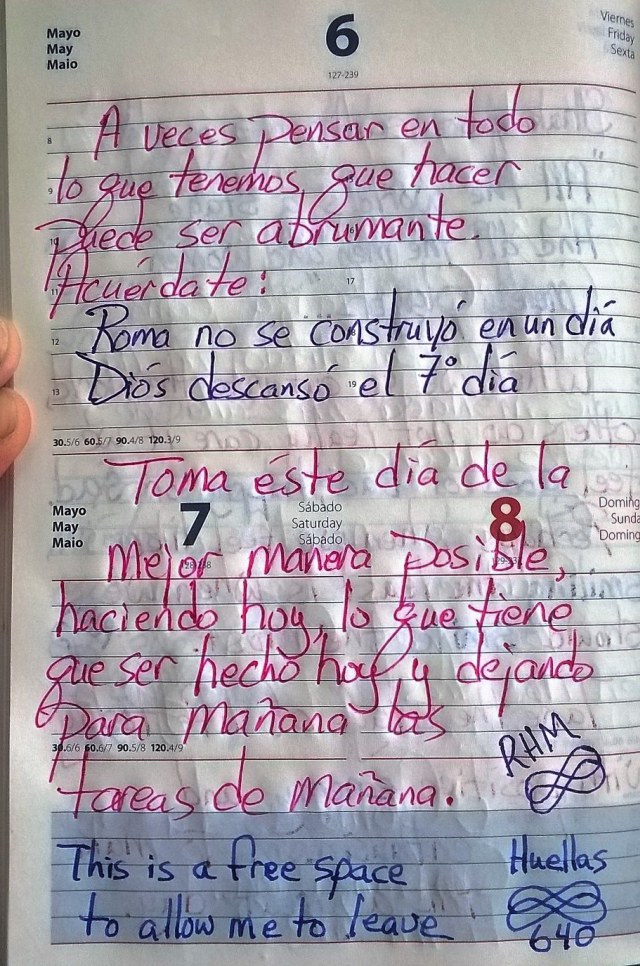 Mayo
May
Maio
6
127-239
Viernes
Friday
Sexta
8
A veces pensar en todo
9
lo que tenemos que hacer
10
Puede ser abrumante.
11
17
Acuérdate:
12
Roma no se construyó en un día
13
19
Diós descansó el 7° día
30.5/6 60.5/7 90.4/8 120.3/9
Toma éste día de la
Mayo
May
Maio
7
Sábado
Saturday
Sábado
8
Doming
Sunda
Doming
Mejor manera posible,
haciendo hoy, lo que tiene
que ser hecho hoy y dejando
para mañana las
30.6/6 60.6/7 90.5/8 120.4/9
RHM
tareas de mañana.
This is a free space
Huellas
to allow me to leave
640